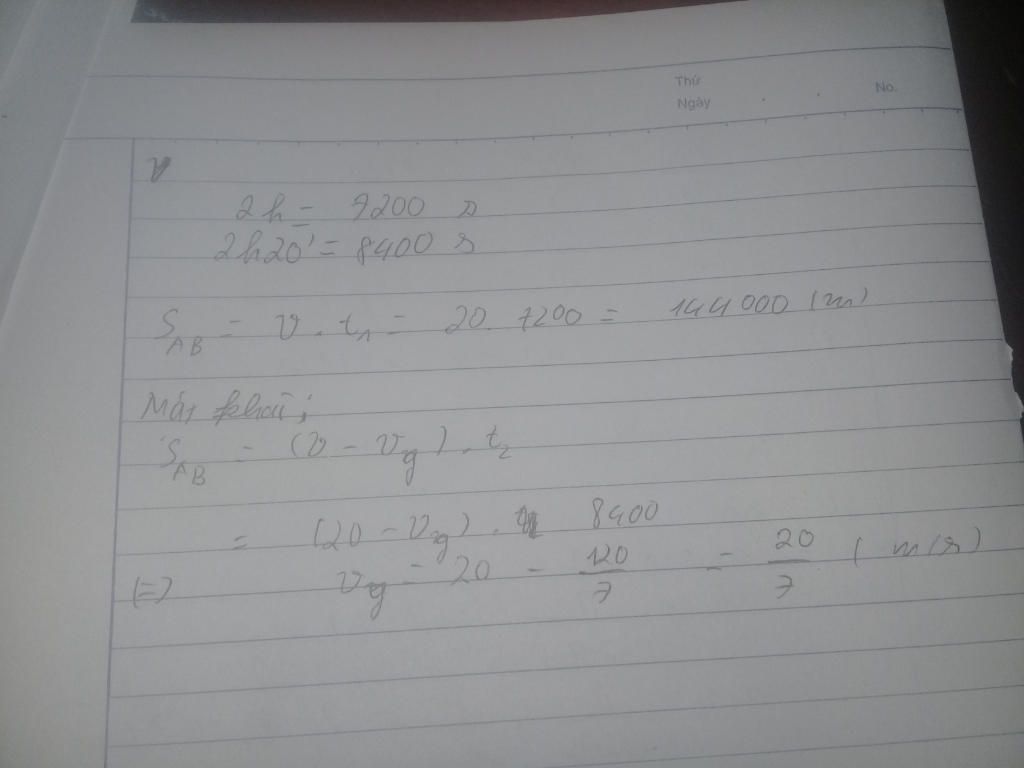 Thứ
Ngày . .
No.
2h = 7200 s
2h20' = 8400 s
S_AB = v . t_1 = 20 . 7200 = 144000 (m)
Mặt khác :
S_AB = (v - v_g) . t_2
= (20 - v_g) . 8400
(=) v_g = 20 - 120/7 = 20/7 (m/s)